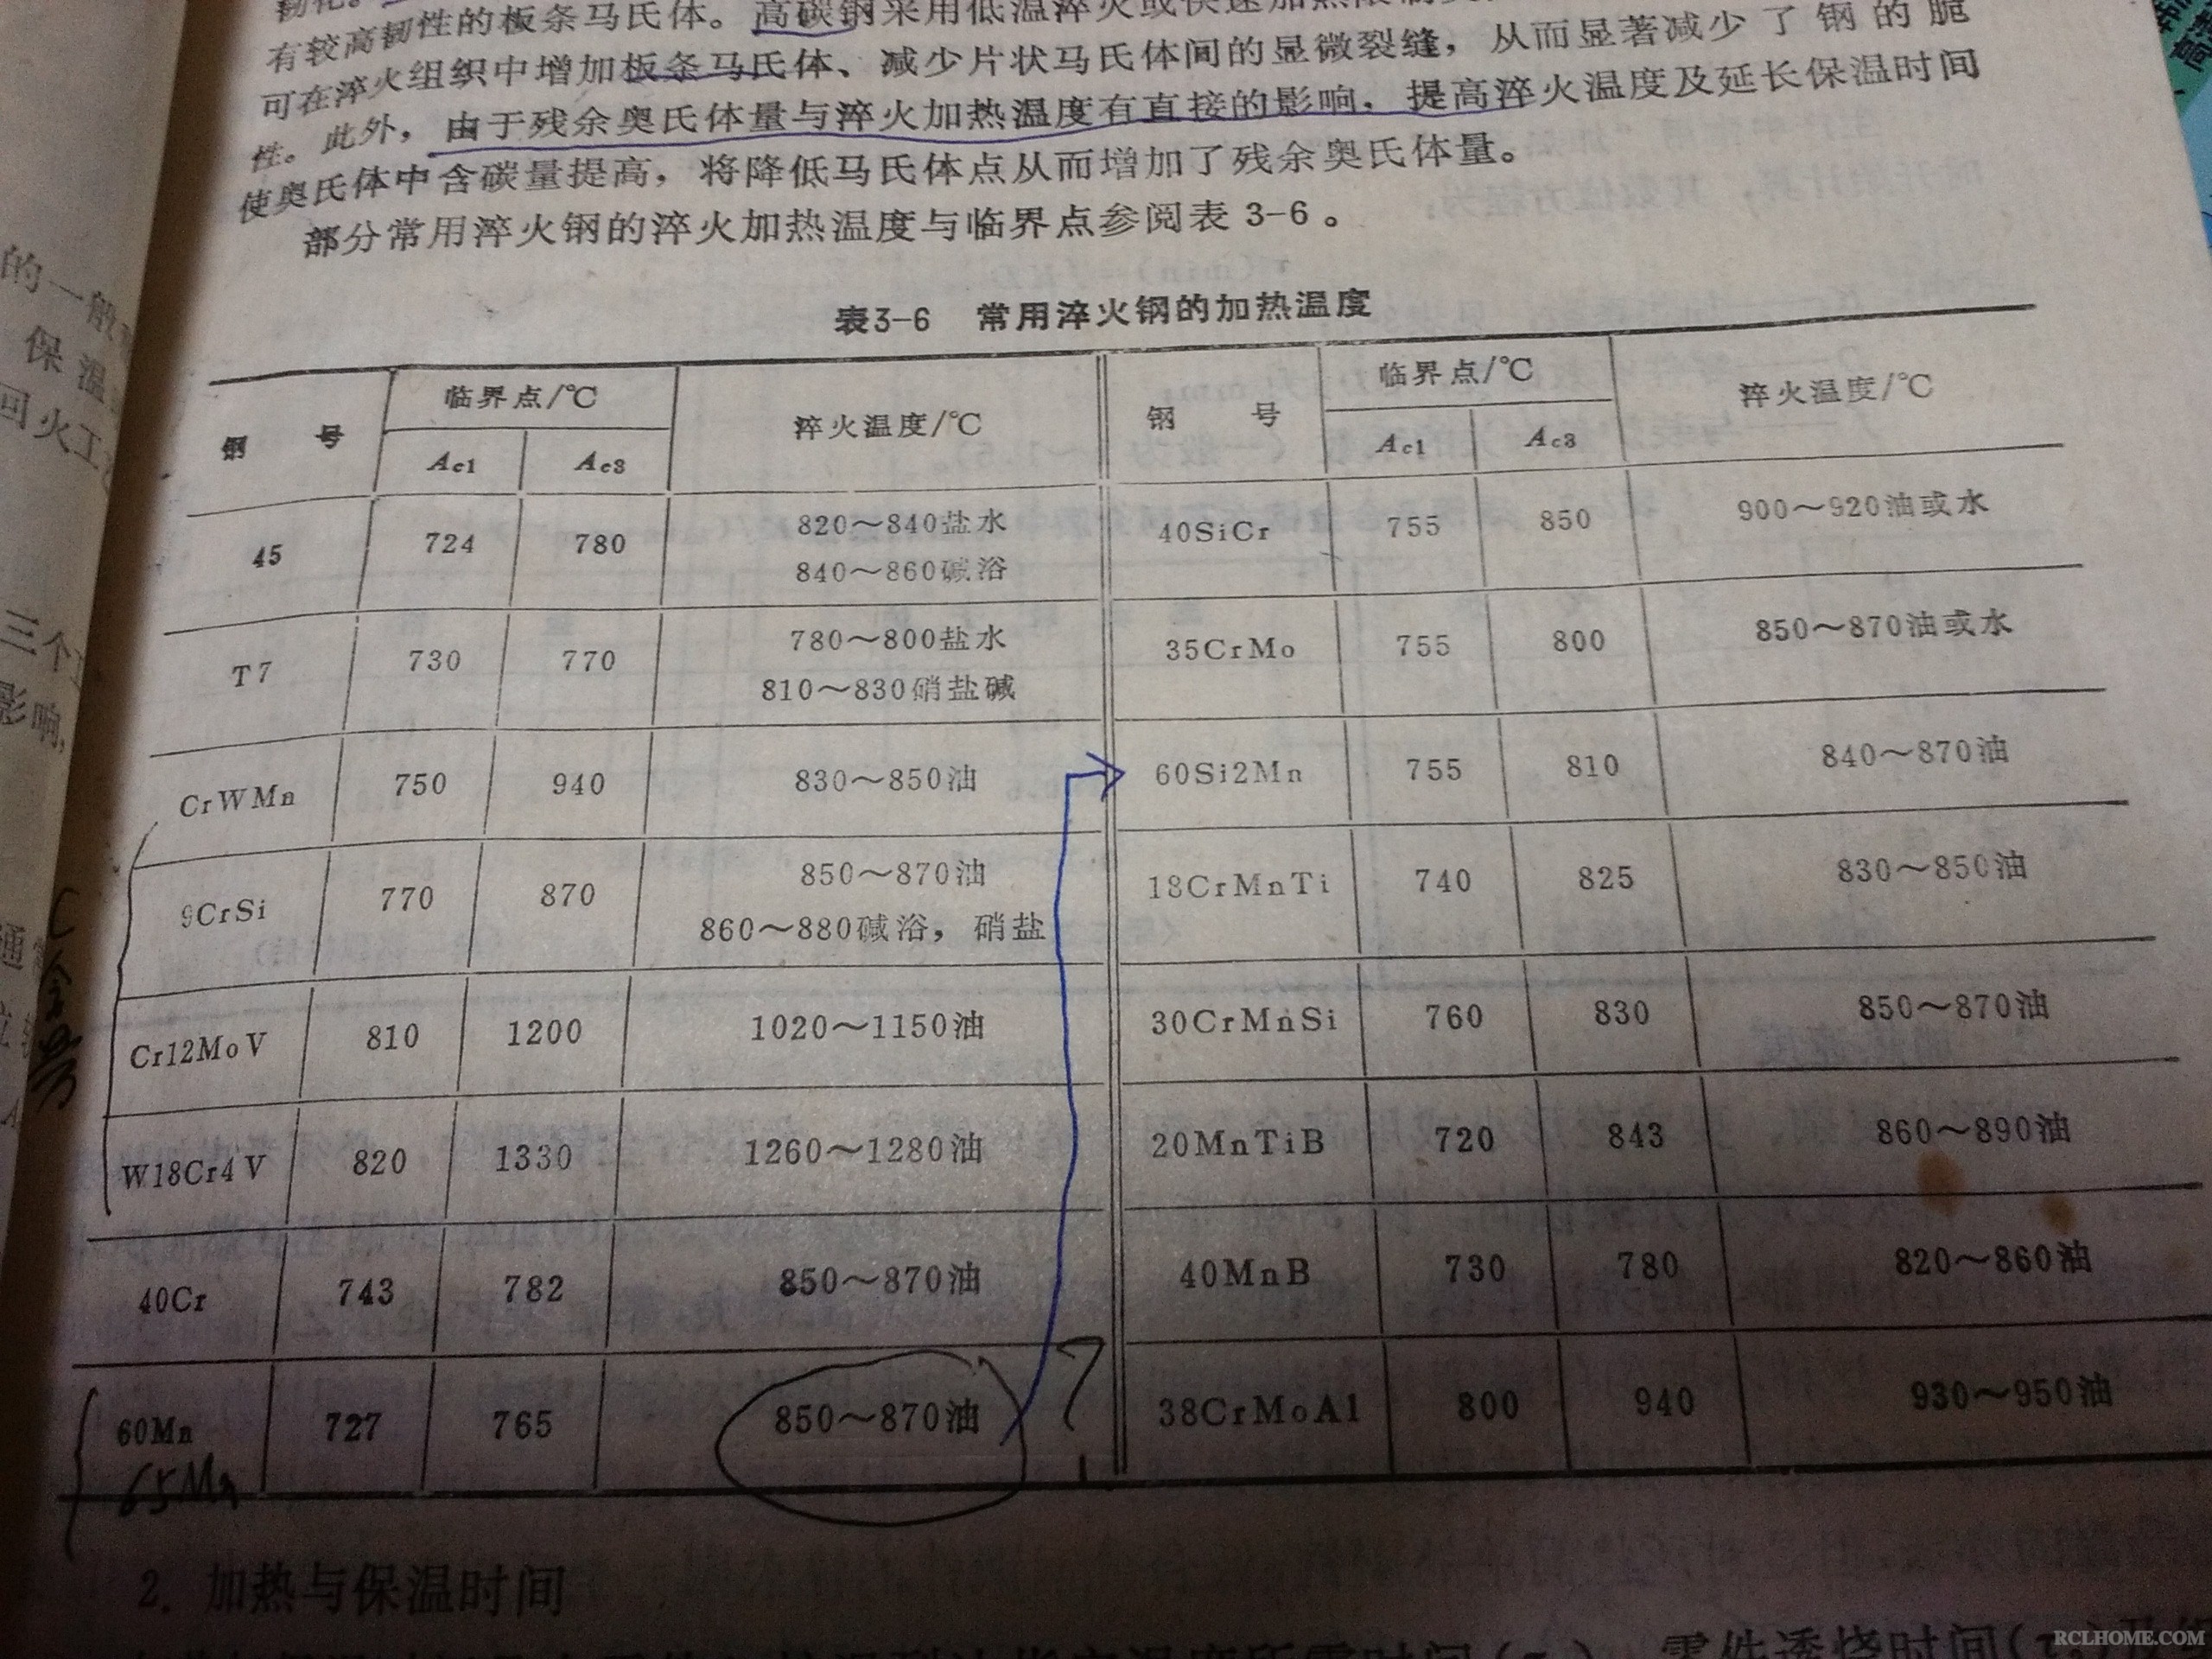 有较高韧性的板条马氏体。高碳钢采用低温淬火或快速加热限制
可在淬火组织中增加板条马氏体、减少片状马氏体间的显微裂缝，从而显著减少了钢的脆
性。此外，由于残余奥氏体量与淬火加热温度有直接的影响，提高淬火温度及延长保温时间
使奥氏体中含碳量提高，将降低马氏体点从而增加了残余奥氏体量。
部分常用淬火钢的淬火加热温度与临界点参阅表 3-6 。
表3-6 常用淬火钢的加热温度
钢 号 临界点/℃ 淬火温度/℃ 钢 号 临界点/℃ 淬火温度/℃
Ac1 Ac3 Ac1 Ac3
45 724 780 820～840盐水 40SiCr 755 850 900～920油或水
840～860碱浴
T7 730 770 780～800盐水 35CrMo 755 800 850～870油或水
810～830硝盐碱
CrWMn 750 940 830～850油 60Si2Mn 755 810 840～870油
9CrSi 770 870 850～870油 18CrMnTi 740 825 830～850油
860～880碱浴，硝盐
Cr12MoV 810 1200 1020～1150油 30CrMnSi 760 830 850～870油
W18Cr4V 820 1330 1260～1280油 20MnTiB 720 843 860～890油
40Cr 743 782 850～870油 40MnB 730 780 820～860油
60Mn 727 765 850～870油 ? 38CrMoAl 800 940 930～950油
65Mn
2. 加热与保温时间
的一般
保温
回火工
三个
影响,
通
C含量
零件透烧时间
RCLHOME.COM